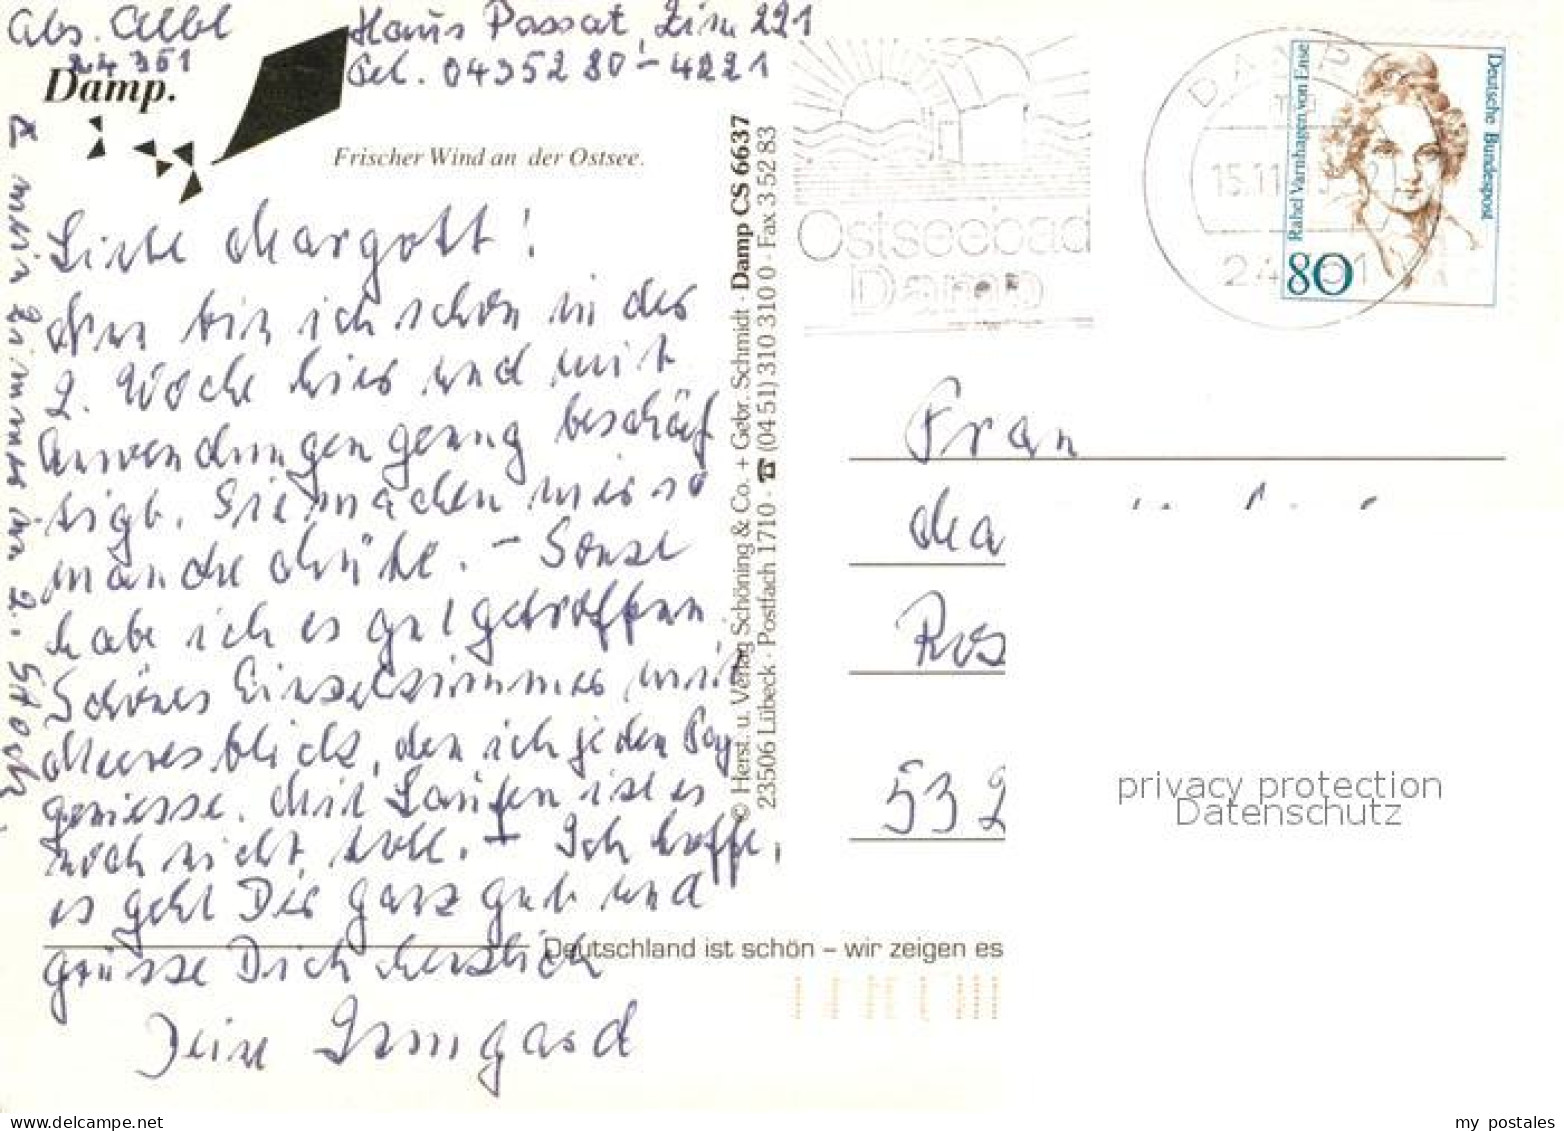 Abs. Albl
24351
Haus Passat, Zim 221
Tel. 04352 80-4221
Damp.
Frischer Wind an der Ostsee.
Liebe Margott!
Nun bin ich schon in der
2. Woche hier und mit
Anwendungen genug beschäf
tigt. Sie machen mir so
manche Mühe. - Sonst
habe ich es gut getroffen.
Schönes Einzelzimmer mit
Meeresblick, den ich jeden Tag
geniesse. Mit Laufen ist es
noch nicht toll. - Ich hoffe,
es geht Dir ganz gut und
grüsse Dich herzlich
Deine Irmgard
mein Zimmer im 2. Stock
© Herst. u. Verlag Schöning & Co. + Gebr. Schmidt · Damp CS 6637
23506 Lübeck · Postfach 1710 · ☎ (04 51) 310 310 0 · Fax 3 52 83
Ostseebad
Damp
DAMP
15.11
Deutsche Bundespost
Rahel Varnhagen von Ense
80
Frau
Ma
Ros
532
privacy protection
Datenschutz
Deutschland ist schön – wir zeigen es
my postales